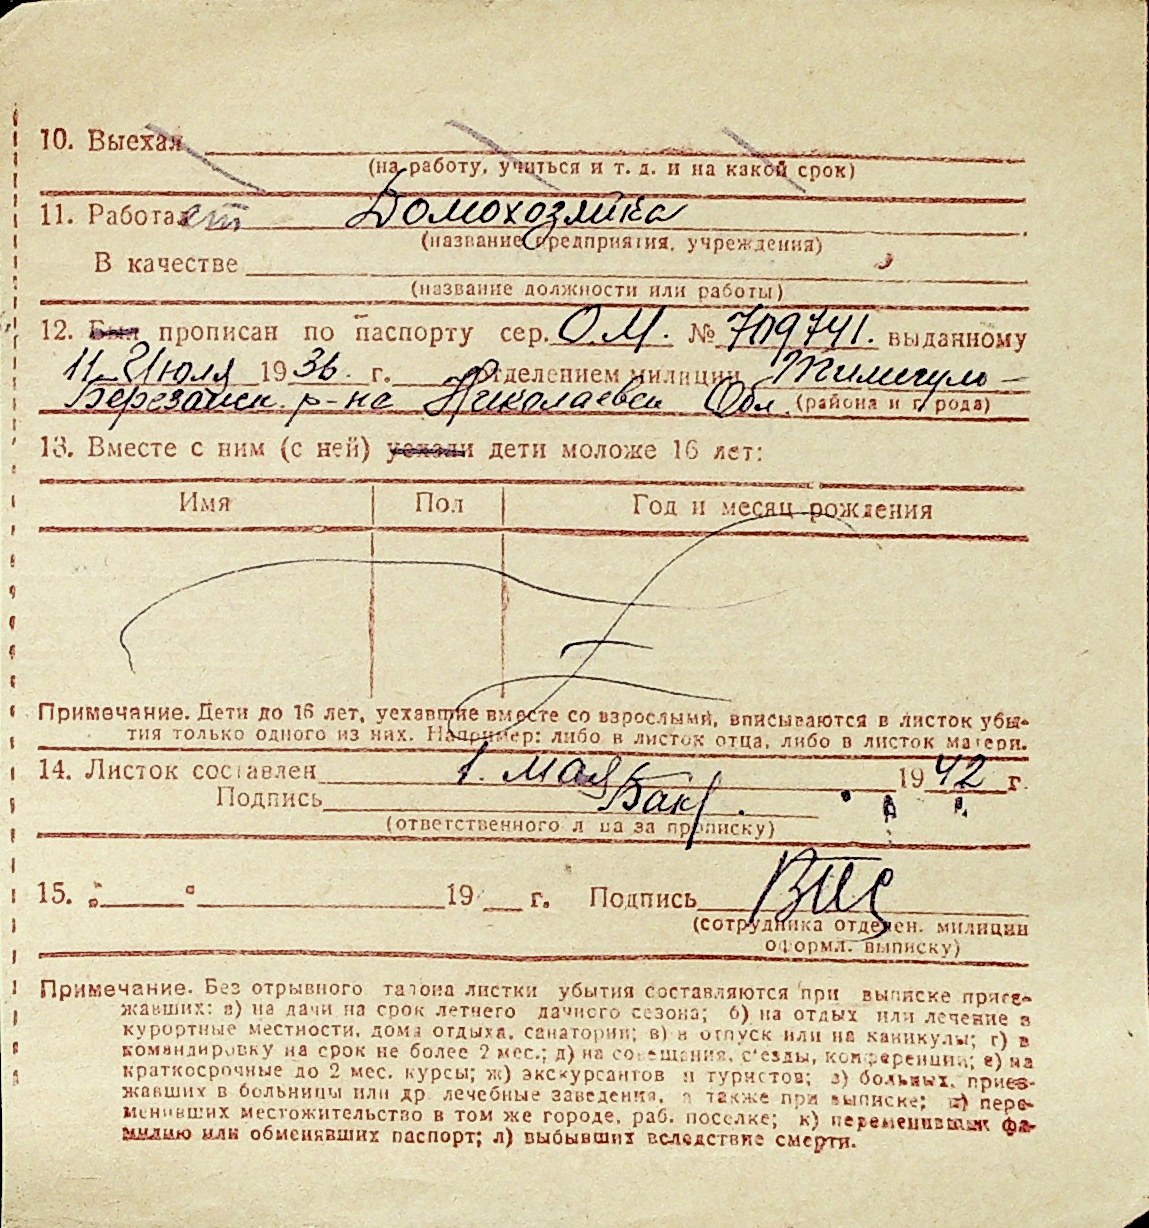 10. Выехал
(на работу, учиться и т. д. и на какой срок)
11. Работает Домохозяйка
(название предприятия, учреждения)
В качестве
(название должности или работы)
12. Был прописан по паспорту сер. О.М. № 709741. выданному
11 Июля 1936. г. отделением милиции Тилигуло-
Березанск. р-на Николаевск Обл. (района и города)
13. Вместе с ним (с ней) уехали дети моложе 16 лет:
Имя Пол Год и месяц рождения
Примечание. Дети до 16 лет, уехавшие вместе со взрослыми, вписываются в листок убы-
тия только одного из них. Например: либо в листок отца, либо в листок матери.
14. Листок составлен 1. мая 1942 г.
Подпись
(ответственного лица за прописку)
15. " " 19 г. Подпись
(сотрудника отделен. милиции
оформл. выписку)
Примечание. Без отрывного талона листки убытия составляются при выписке приез-
жавших: а) на дачи на срок летнего дачного сезона; б) на отдых или лечение в
курортные местности, дома отдыха, санатории; в) в отпуск или на каникулы; г) в
командировку на срок не более 2 мес.; д) на совещания, с'езды, конференции; е) на
краткосрочные до 2 мес. курсы; ж) экскурсантов и туристов; з) больных, приез-
жавших в больницы или др. лечебные заведения, а также при выписке; и) пере-
менивших местожительство в том же городе, раб. поселке; к) переменивших фа-
милию или обменявших паспорт; л) выбывших вследствие смерти.